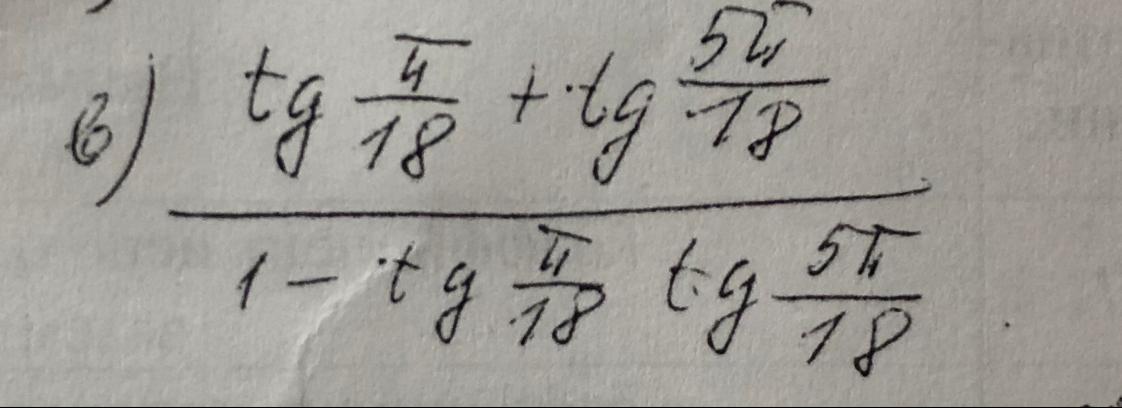 в) tg π/18 + tg 5π/18
1 - tg π/18 tg 5π/18